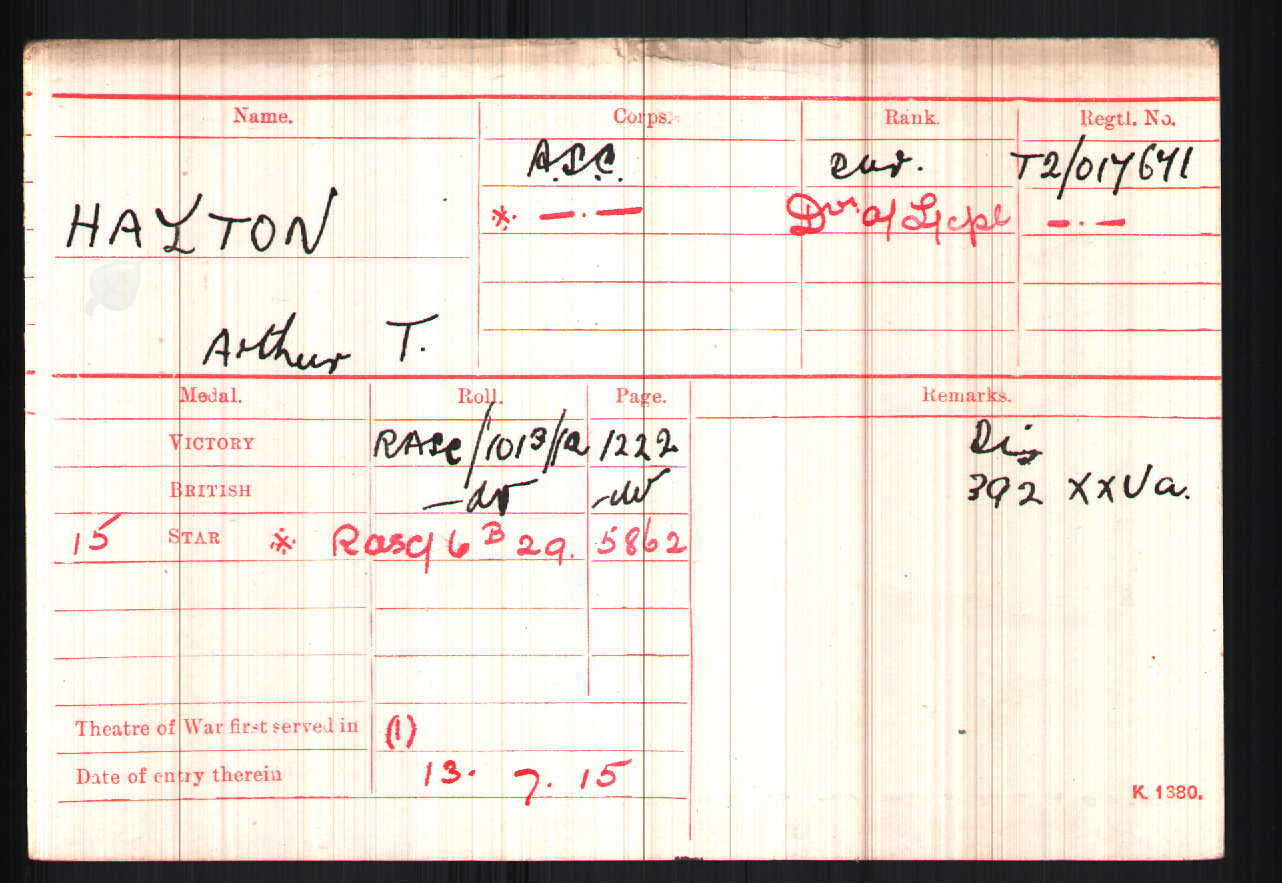 Name. Corps. Rank. Regtl. No.
A.S.C. Dvr. T2/017671
HAYTON * — . — Dvr. a/L/cpl — . —
Arthur T.
Medal. Roll. Page. Remarks.
VICTORY RASC/101B/12 1222 Dis
BRITISH —do —do 392 XXVa.
15 STAR * Rasc/ 6 B 29. 5862
Theatre of War first served in (1)
Date of entry therein 13. 7. 15
K. 1380.